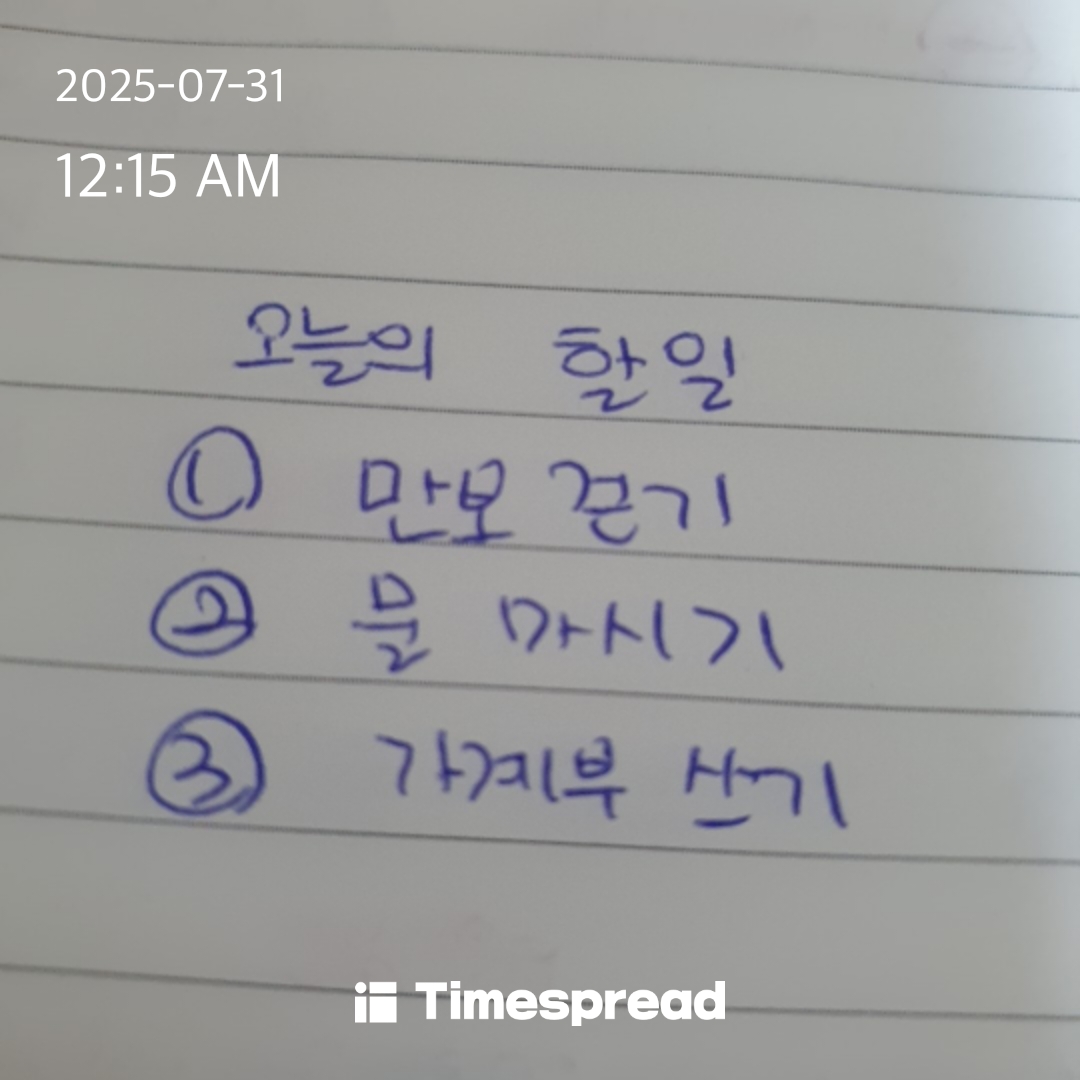 2025-07-31
12:15 AM
오늘의 할일
① 만보 걷기
② 물 마시기
③ 가계부 쓰기
Timespread